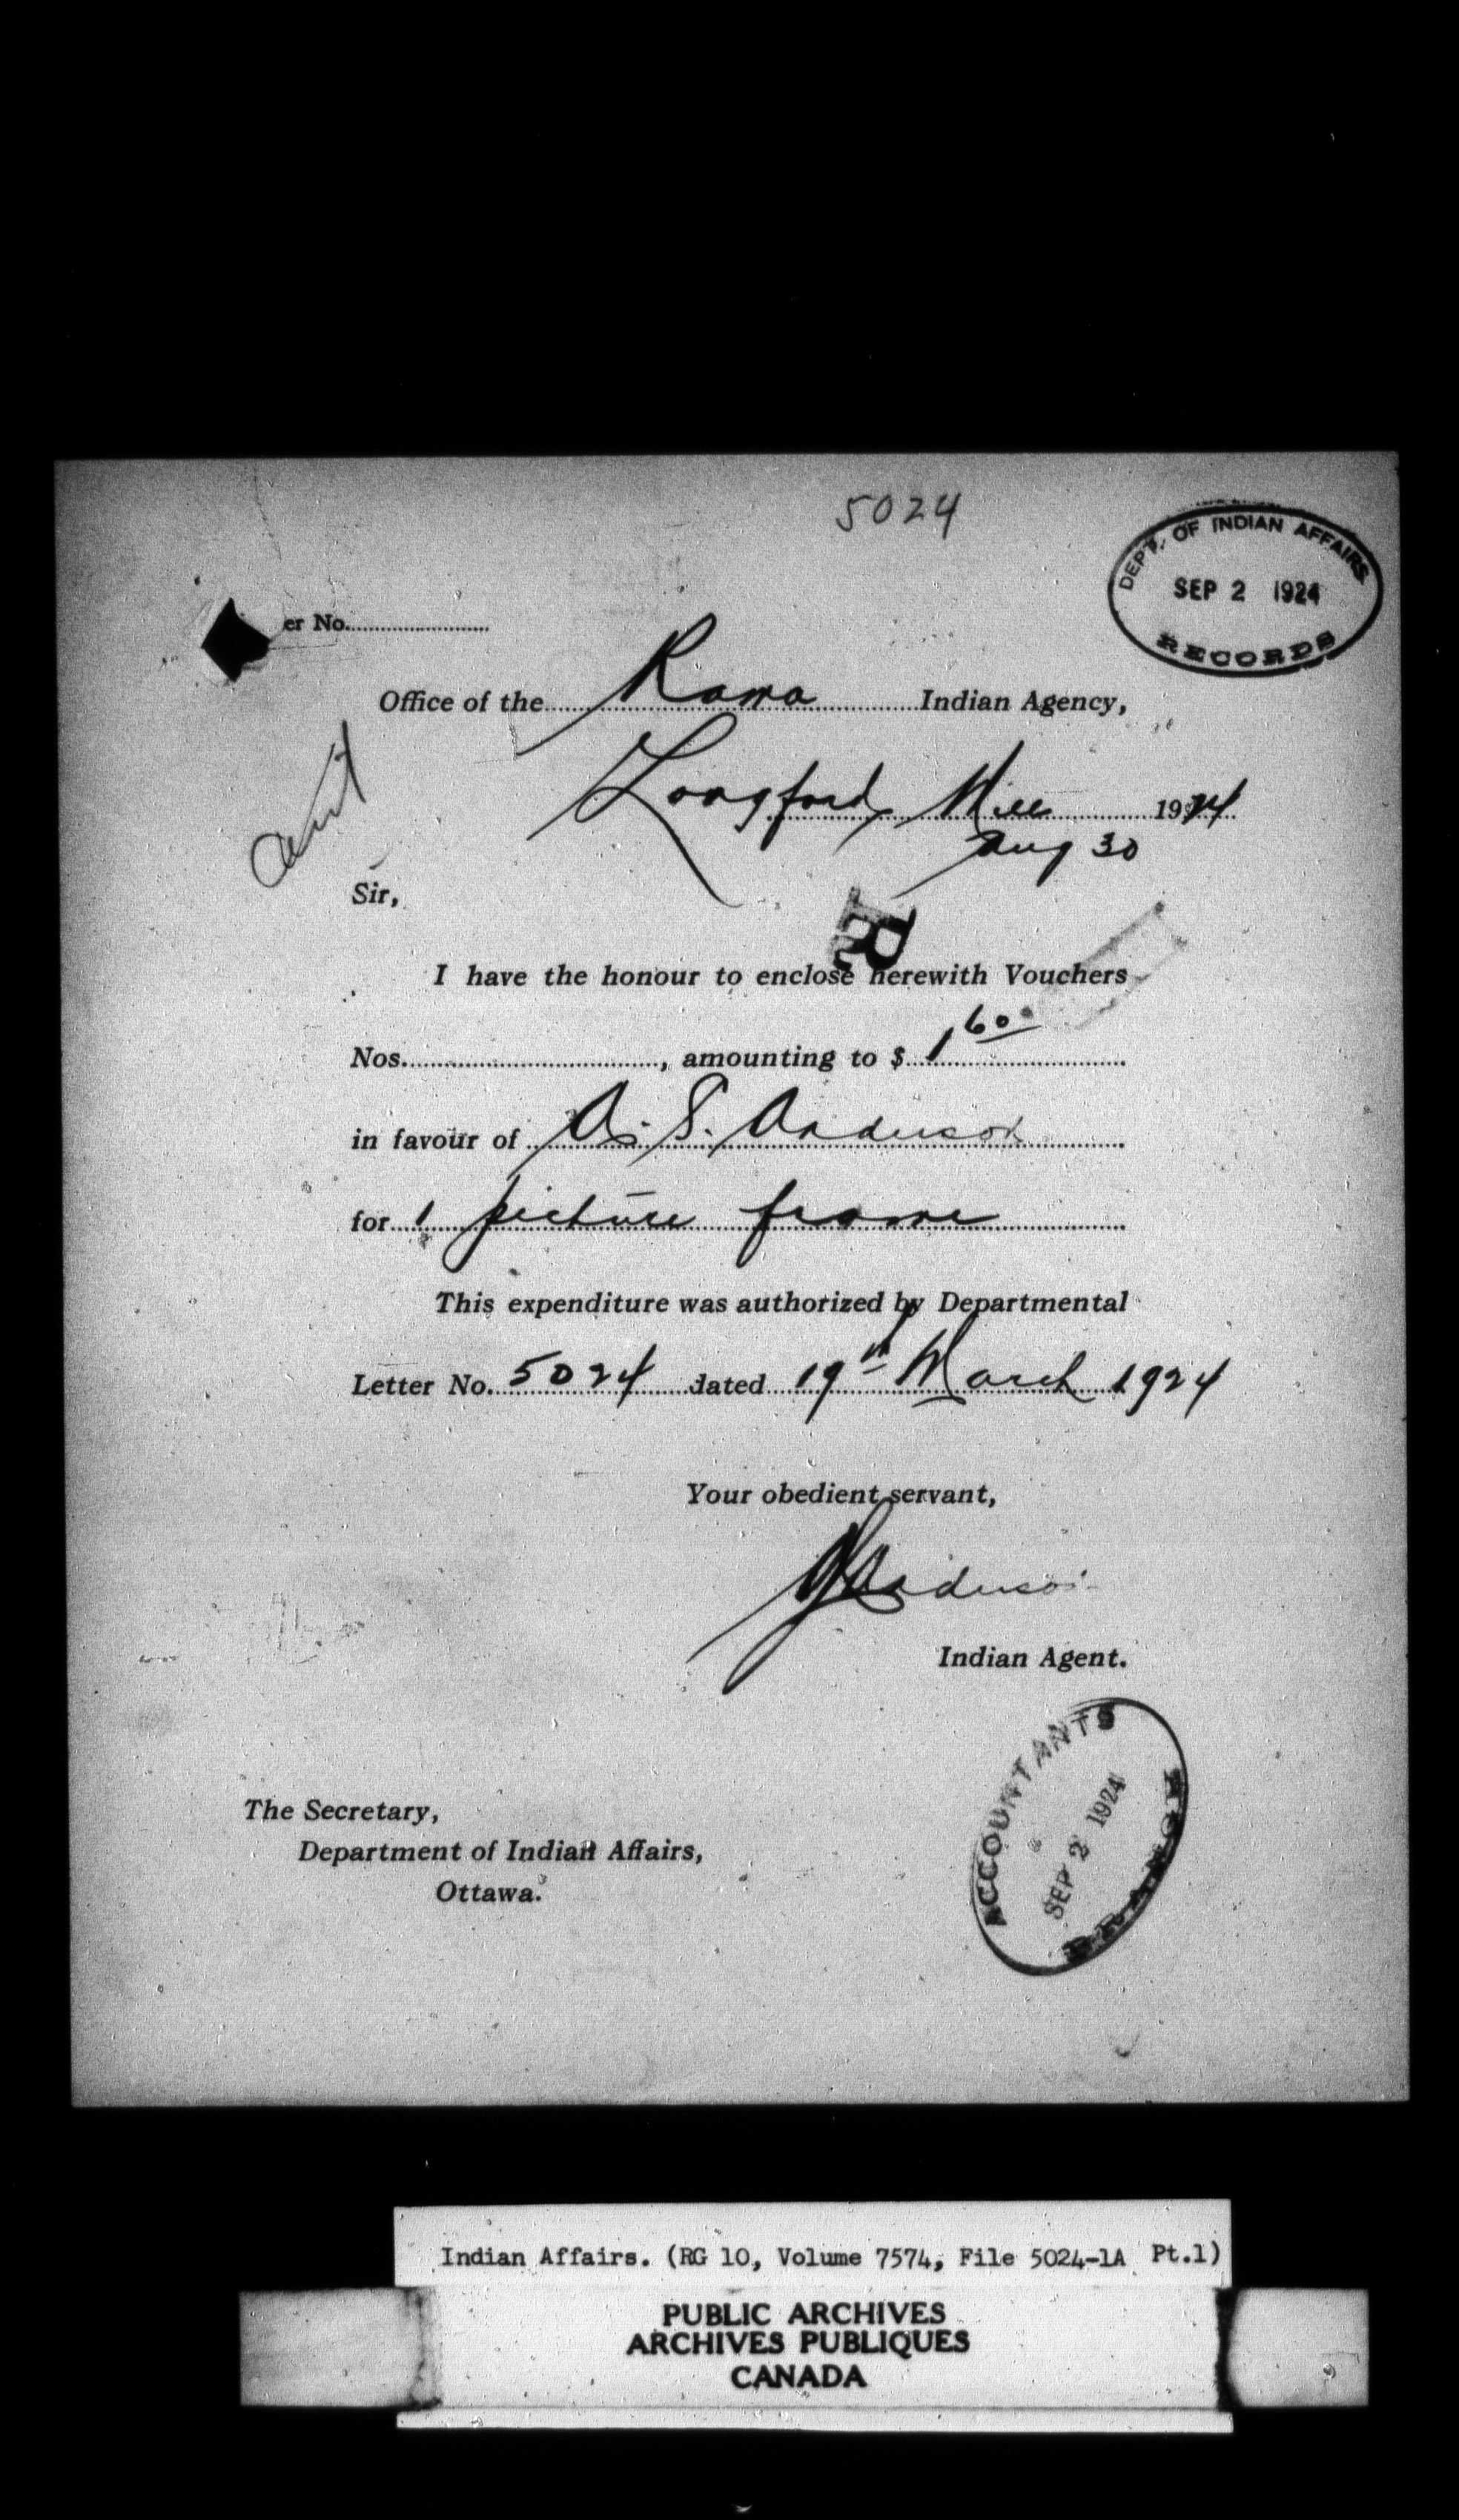 5024
DEPT. OF INDIAN AFFAIRS
SEP 2 1924
RECORDS
er No.
Office of the Rama Indian Agency,
Longford Mill 1924
Aug 30
Sir,
R
I have the honour to enclose herewith Vouchers
Nos. , amounting to $ 1 60
in favour of A. S. Anderson
for 1 picture frame
This expenditure was authorized by Departmental
Letter No. 5024 dated 19th March 1924
Your obedient servant,
Anderson
Indian Agent.
ACCOUNTANTS
SEP 2 1924
BRANCH
The Secretary,
Department of Indian Affairs,
Ottawa.
Indian Affairs. (RG 10, Volume 7574, File 5024-1A Pt.1)
PUBLIC ARCHIVES
ARCHIVES PUBLIQUES
CANADA